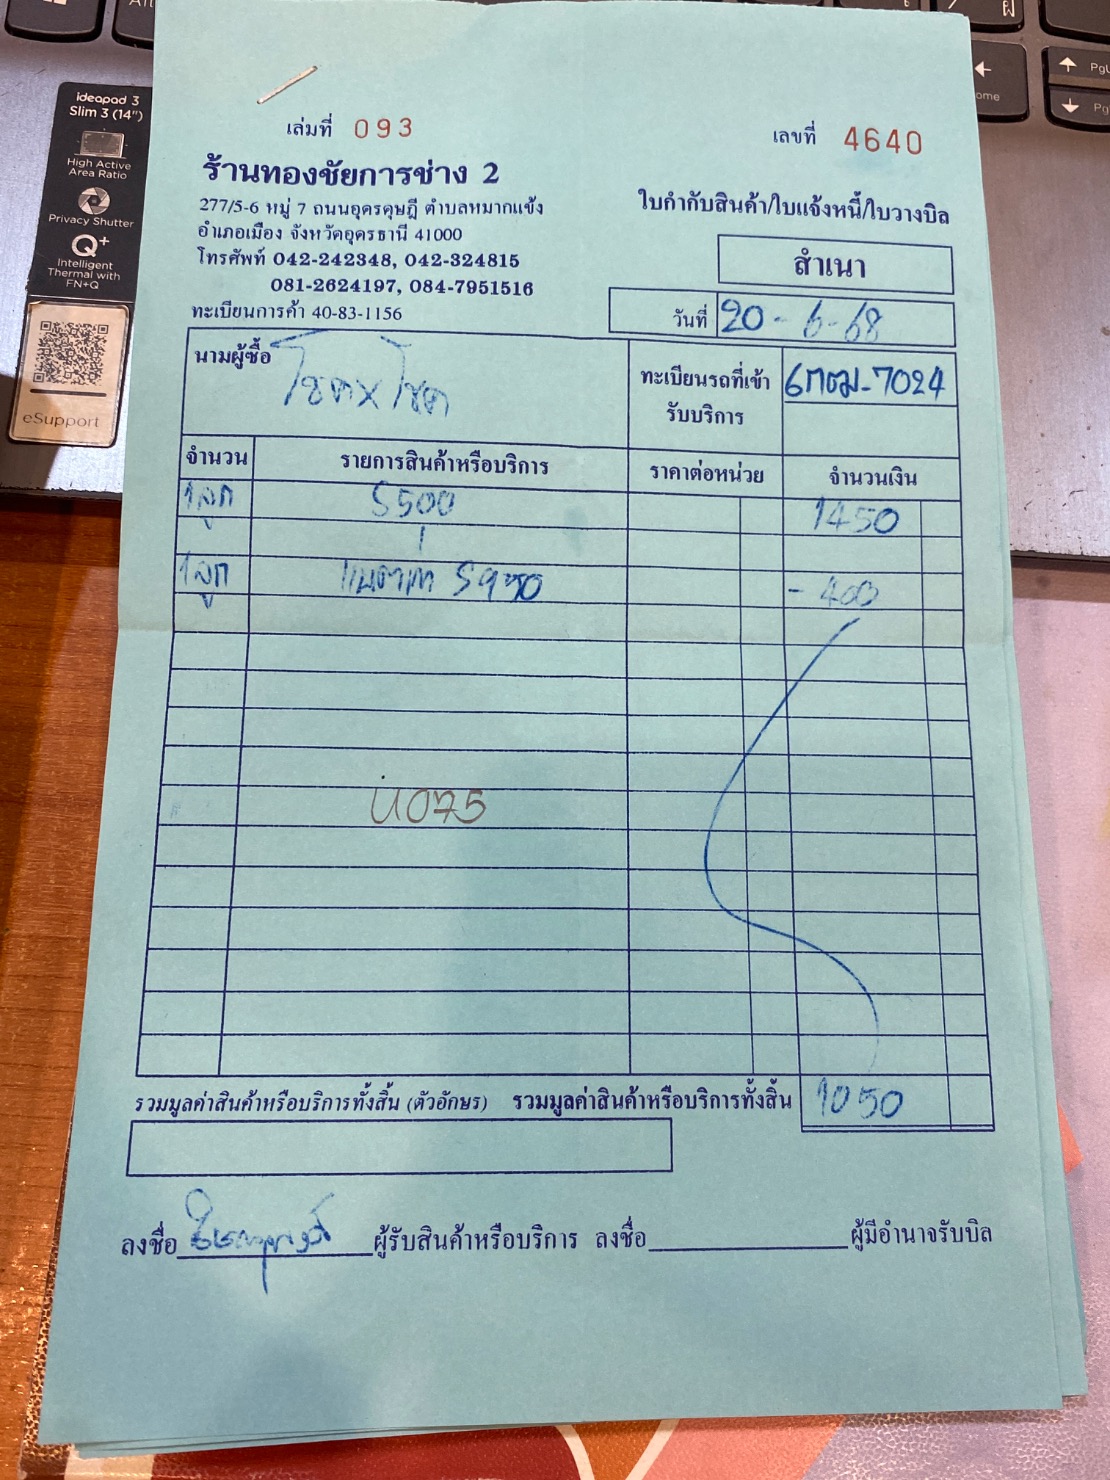 ideapad 3
Slim 3 (14")
High Active
Area Ratio
Privacy Shutter
Q+
Intelligent
Thermal with
FN+Q
eSupport
PgU
ome
เล่มที่ 093
เลขที่ 4640
ร้านทองชัยการช่าง 2
277/5-6 หมู่ 7 ถนนอุดรดุษฎี ตำบลหมากแข้ง
อำเภอเมือง จังหวัดอุดรธานี 41000
โทรศัพท์ 042-242348, 042-324815
081-2624197, 084-7951516
ทะเบียนการค้า 40-83-1156
ใบกำกับสินค้า/ใบแจ้งหนี้/ใบวางบิล
สำเนา
วันที่ 20-6-68
นามผู้ซื้อ โชคxโชค
ทะเบียนรถที่เข้ารับบริการ 6กฒ-7024
จำนวน รายการสินค้าหรือบริการ ราคาต่อหน่วย จำนวนเงิน
1ลูก S500 1450
1ลูก -400
น075
รวมมูลค่าสินค้าหรือบริการทั้งสิ้น (ตัวอักษร) รวมมูลค่าสินค้าหรือบริการทั้งสิ้น 1050
ลงชื่อ ผู้รับสินค้าหรือบริการ ลงชื่อ ผู้มีอำนาจรับบิล